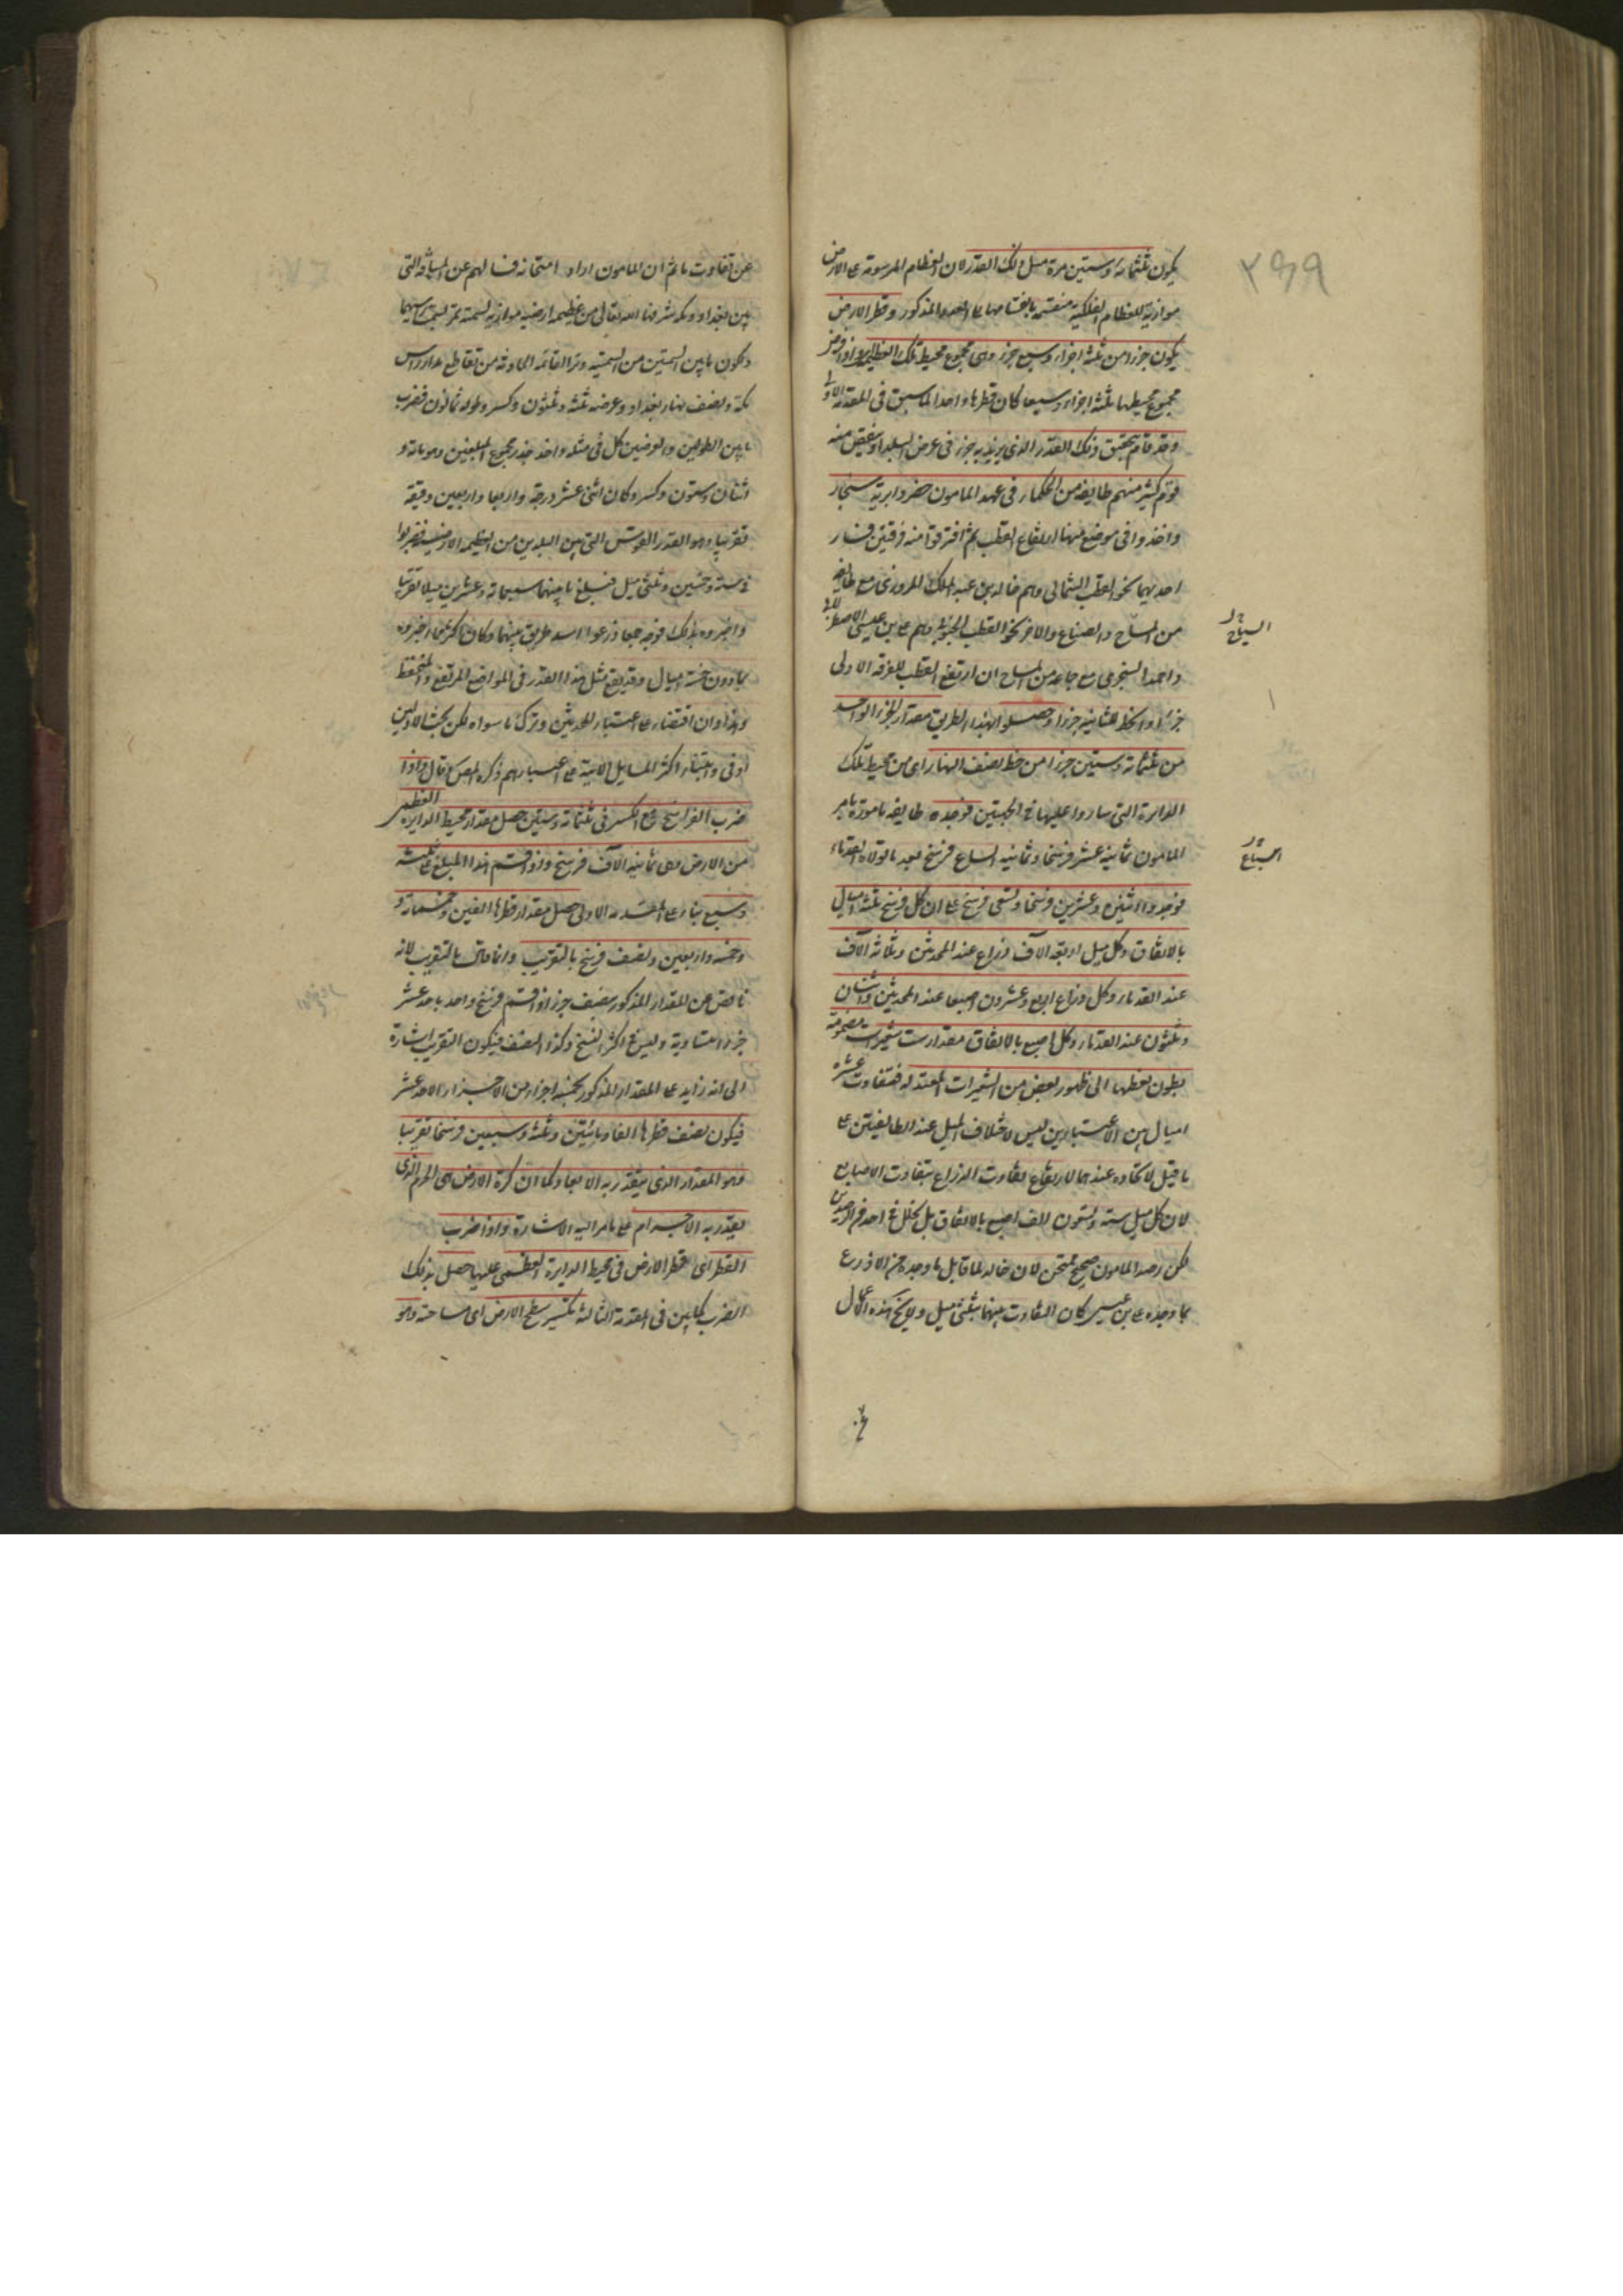 ٢٩٩
يكون ثلثمائة وستين مرة مثل ذلك القدر لان العظام المرسومة على الارض
موازية للعظام الفلكية منقسمة بانقسامها على العدد المذكور وقطر الارض
يكون جزءا من ثلثة اجزاء وسبع جزء وهى مجموع محيط تلك العظيمة
مجموع محيطها ثلثة اجزاء وسبعا كان قطرها واحدا لما سبق فى المقدمة الاولى
وقد قام بتحقيق ذلك القدر الذى يزيد به جزء فى عرض البلد او ينقص منه
قوم كثير منهم طايفة من الحكماء فى عهد المامون حضروا برية سنجار
واخذوا فى موضع منها ارتفاع القطب ثم افترقوا منه فرقتين فسار
احديهما نحو القطب الشمالى وهم خالد بن عبد الملك المروزى مع طايفة
من المساح والصناع والاخر نحو القطب الجنوبى وهم على بن عيسى الاصطرلابى
واحمد البحترى مع جماعة من المساح ان ارتفع القطب للفرقة الاولى
جزءا وانحط للثانية جزءا وحصلوا بهذا الطريق مقدار الجزء الواحد
من ثلثمائة وستين جزءا من خط نصف النهار اى من محيط تلك
الدايرة التى ساروا عليها فى الجهتين فوجده طايفة مامورة بامر
المامون ثمانية عشر فرسخا وثمانية اتساع فرسخ بعد ما تولاه القدماء
فوجدوا اثنين وعشرين فرسخا وتسعى فرسخ على ان كل فرسخ ثلثة اميال
بالاتفاق وكل ميل اربعة الاف ذراع عند المحدثين وثلاثة الاف
عند القدماء وكل ذراع اربع وعشرون اصبعا عند المحدثين واثنان
وثلثون عند القدماء وكل اصبع بالاتفاق مقدار ست شعيرات مضمومة
بطون بعضها الى ظهور بعض من الشعيرات المعتدلة فتفاوت عشرة
اميال بين الاعتبارين ليس لاختلاف الميل عند الطايفتين على
ما قيل لاتحاده عندهما لارتفاع تفاوت الذراع بتفاوت الاصابع
لان كل ميل ستة وتسعون الف اصبع بالاتفاق بل لخلل فى احد الرصدين
لكن رصد المامون صحيح ممتحن لان خالد لما قابل ما وجده من الاذرع
بما وجده على بن عيسى كان التفاوت بينهما بثلثى ميل ولا يخ هذه الاعمال
عن تفاوت ما ثم ان المامون اراد امتحانه فسالهم عن المسافة التى
بين بغداد ومكة شرفها الله تعالى من عظيمة ارضية موازية لسمتية تمر بسمت راسيهما
ويكون ما بين السمتين من السمتية وتر القائمة الحادثة من تقاطع مدار راس
مكة ونصف نهار بغداد وعرضه ثلثة وثلثون وكسر وطوله ثمانون فضرب
ما بين الطولين والعرضين كل فى مثله واخذ جذر مجموع المبلغين وهو مائة و
اثنان وستون وكسر وكان اثنى عشر درجة واربعا واربعين دقيقة
تقريبا وهو القدر القوسى التى بين البلدين من العظيمة الارضية فضربوا
فى ستة وخمسين وثلثى ميل فبلغ ما بينهما سبعمائة وعشرين ميلا تقريبا
واخبروه بذلك فوجه جمعا ذرعوا اسد طريق بينهما وكان اكثر مما اخبروه
بما دون خمسة اميال وقد يقع مثل هذا القدر فى المواضع المرتفع والمنخفظ
وهذا وان اقتضاء على اعتبار المحدثين وترك ما سواه لكن بحث الاولين
اوفى وابتناء اكثر المسايل الاتية على اعتبارهم ذكره المص كما قال واذا
ضرب الفراسخ مع الكسر فى ثلثمائة وستين حصل مقدار محيط الدايرة العظمى
من الارض وهى ثمانية الاف فرسخ واذا قسم هذا المبلغ على ثلثة
وسبع بناء على المقدمة الاولى حصل مقدار قطرها الفين وخمسمائة و
وخمسة واربعين ونصف فرسخ بالتقريب وانما قال بالتقريب لانه
ناقص عن المقدار المذكور بنصف جزء اذا قسم فرسخ واحد باحد عشر
جزءا متساوية وليس فى اكثر النسخ وكذا النصف فيكون التقريب اشارة
الى انه زايد على المقدار المذكور بخمسة اجزاء من الاجزاء الاحد عشر
فيكون نصف قطرها الفا ومائتين وثلثة وسبعين فرسخا تقريبا
وهو المقدار الذى يتقدر به الابعاد كما ان كرة الارض هى الجرم الذى
يتقدر به الاجرام على ما مر اليه الاشارة واذا ضرب
القطر اى قطر الارض فى محيط الدايرة العظمى عليها حصل بذلك
الضرب كما بين فى المقدمة الثالثة تكسير سطح الارض اى مساحته وهو